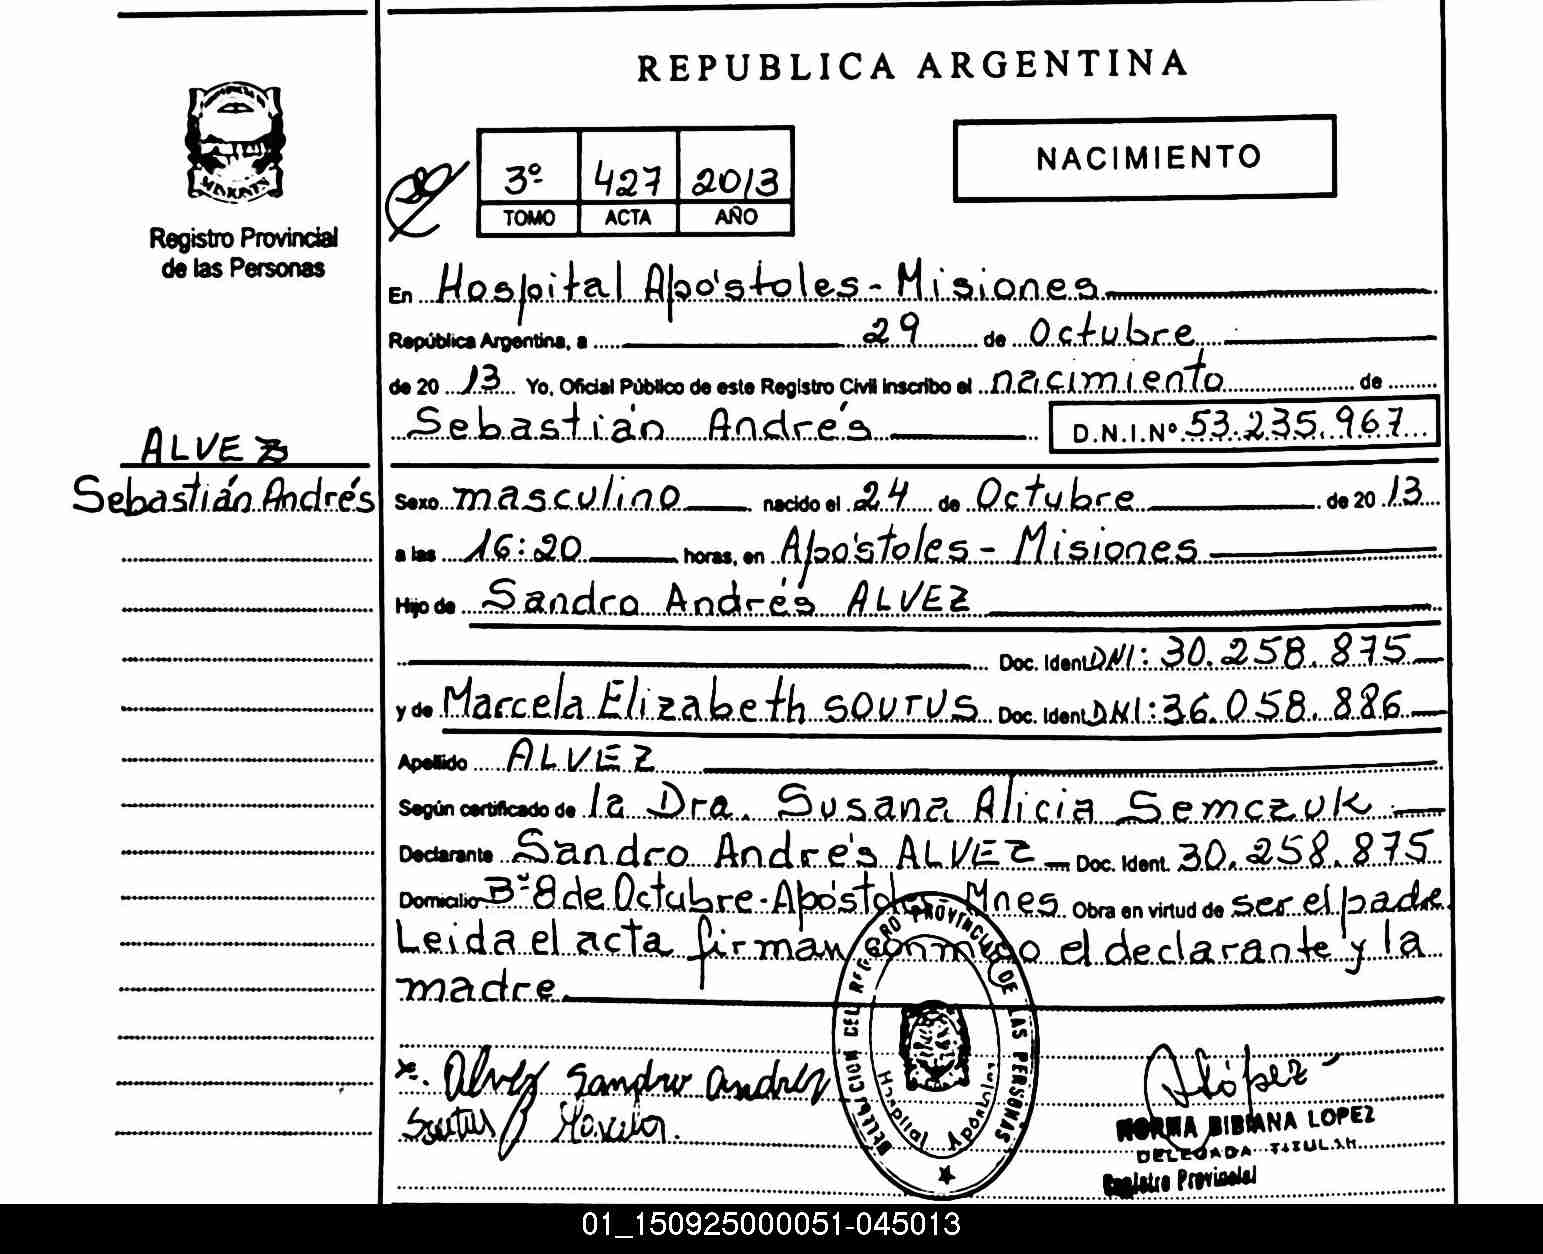 REPUBLICA ARGENTINA
NACIMIENTO
3º 427 2013
TOMO ACTA AÑO
Registro Provincial
de las Personas
En Hospital Apóstoles - Misiones
República Argentina, a 29 de Octubre
de 2013 Yo, Oficial Público de este Registro Civil inscribo el nacimiento de
Sebastián Andrés D.N.I.Nº 53.235.967
ALVEZ
Sebastián Andrés
Sexo masculino nacido el 24 de Octubre de 2013
a las 16:20 horas, en Apóstoles - Misiones
Hijo de Sandro Andrés ALVEZ
Doc. Ident DNI: 30.258.875
y de Marcela Elizabeth SOUTUS Doc. Ident DNI: 36.058.886
Apellido ALVEZ
Según certificado de la Dra. Susana Alicia Semczuk
Declarante Sandro Andrés ALVEZ Doc. Ident. 30.258.875
Domicilio Bº 8 de Octubre - Apóstoles - Mnes Obra en virtud de ser el padre.
Leida el acta firman conmigo el declarante y la
madre.
DELEGACION DEL REGISTRO PROVINCIAL DE LAS PERSONAS
Hospital Apóstoles
x. Alvez Sandro Andrez
Marcela.
López
NORMA BIBIANA LOPEZ
DELEGADA TITULAR
Registro Provincial
01_150925000051-045013